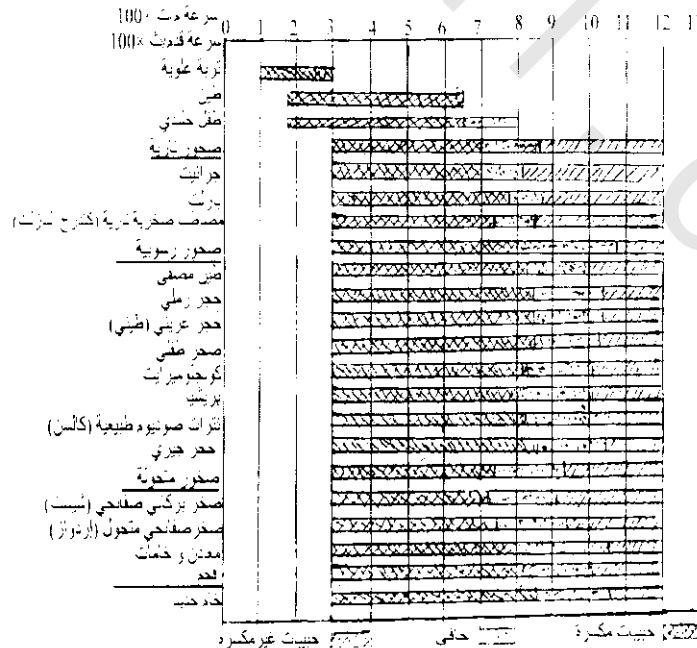 سرعة م/ث ×100
سرعة قدم/ث ×100
0 1 2 3 4 5 6 7 8 9 10 11 12 13
تربة علوية
طين
طفل جليدي
صخور نارية
جرانيت
بازلت
صخور رسوبية
حجر رملي
حجر عريني (طيني)
صخر طفلي
كونجلوميرايت
بريشيا
نترات صوديوم طبيعية (كالسن)
حجر جيري
صخور متحولة
صخر بركاني صفائحي (شيست)
صخر صفائحي متحول (أردواز)
معدن و خامات
فحم
خام حديد
حبيبات غير مكسرة
حافي
حبيبات مكسرة